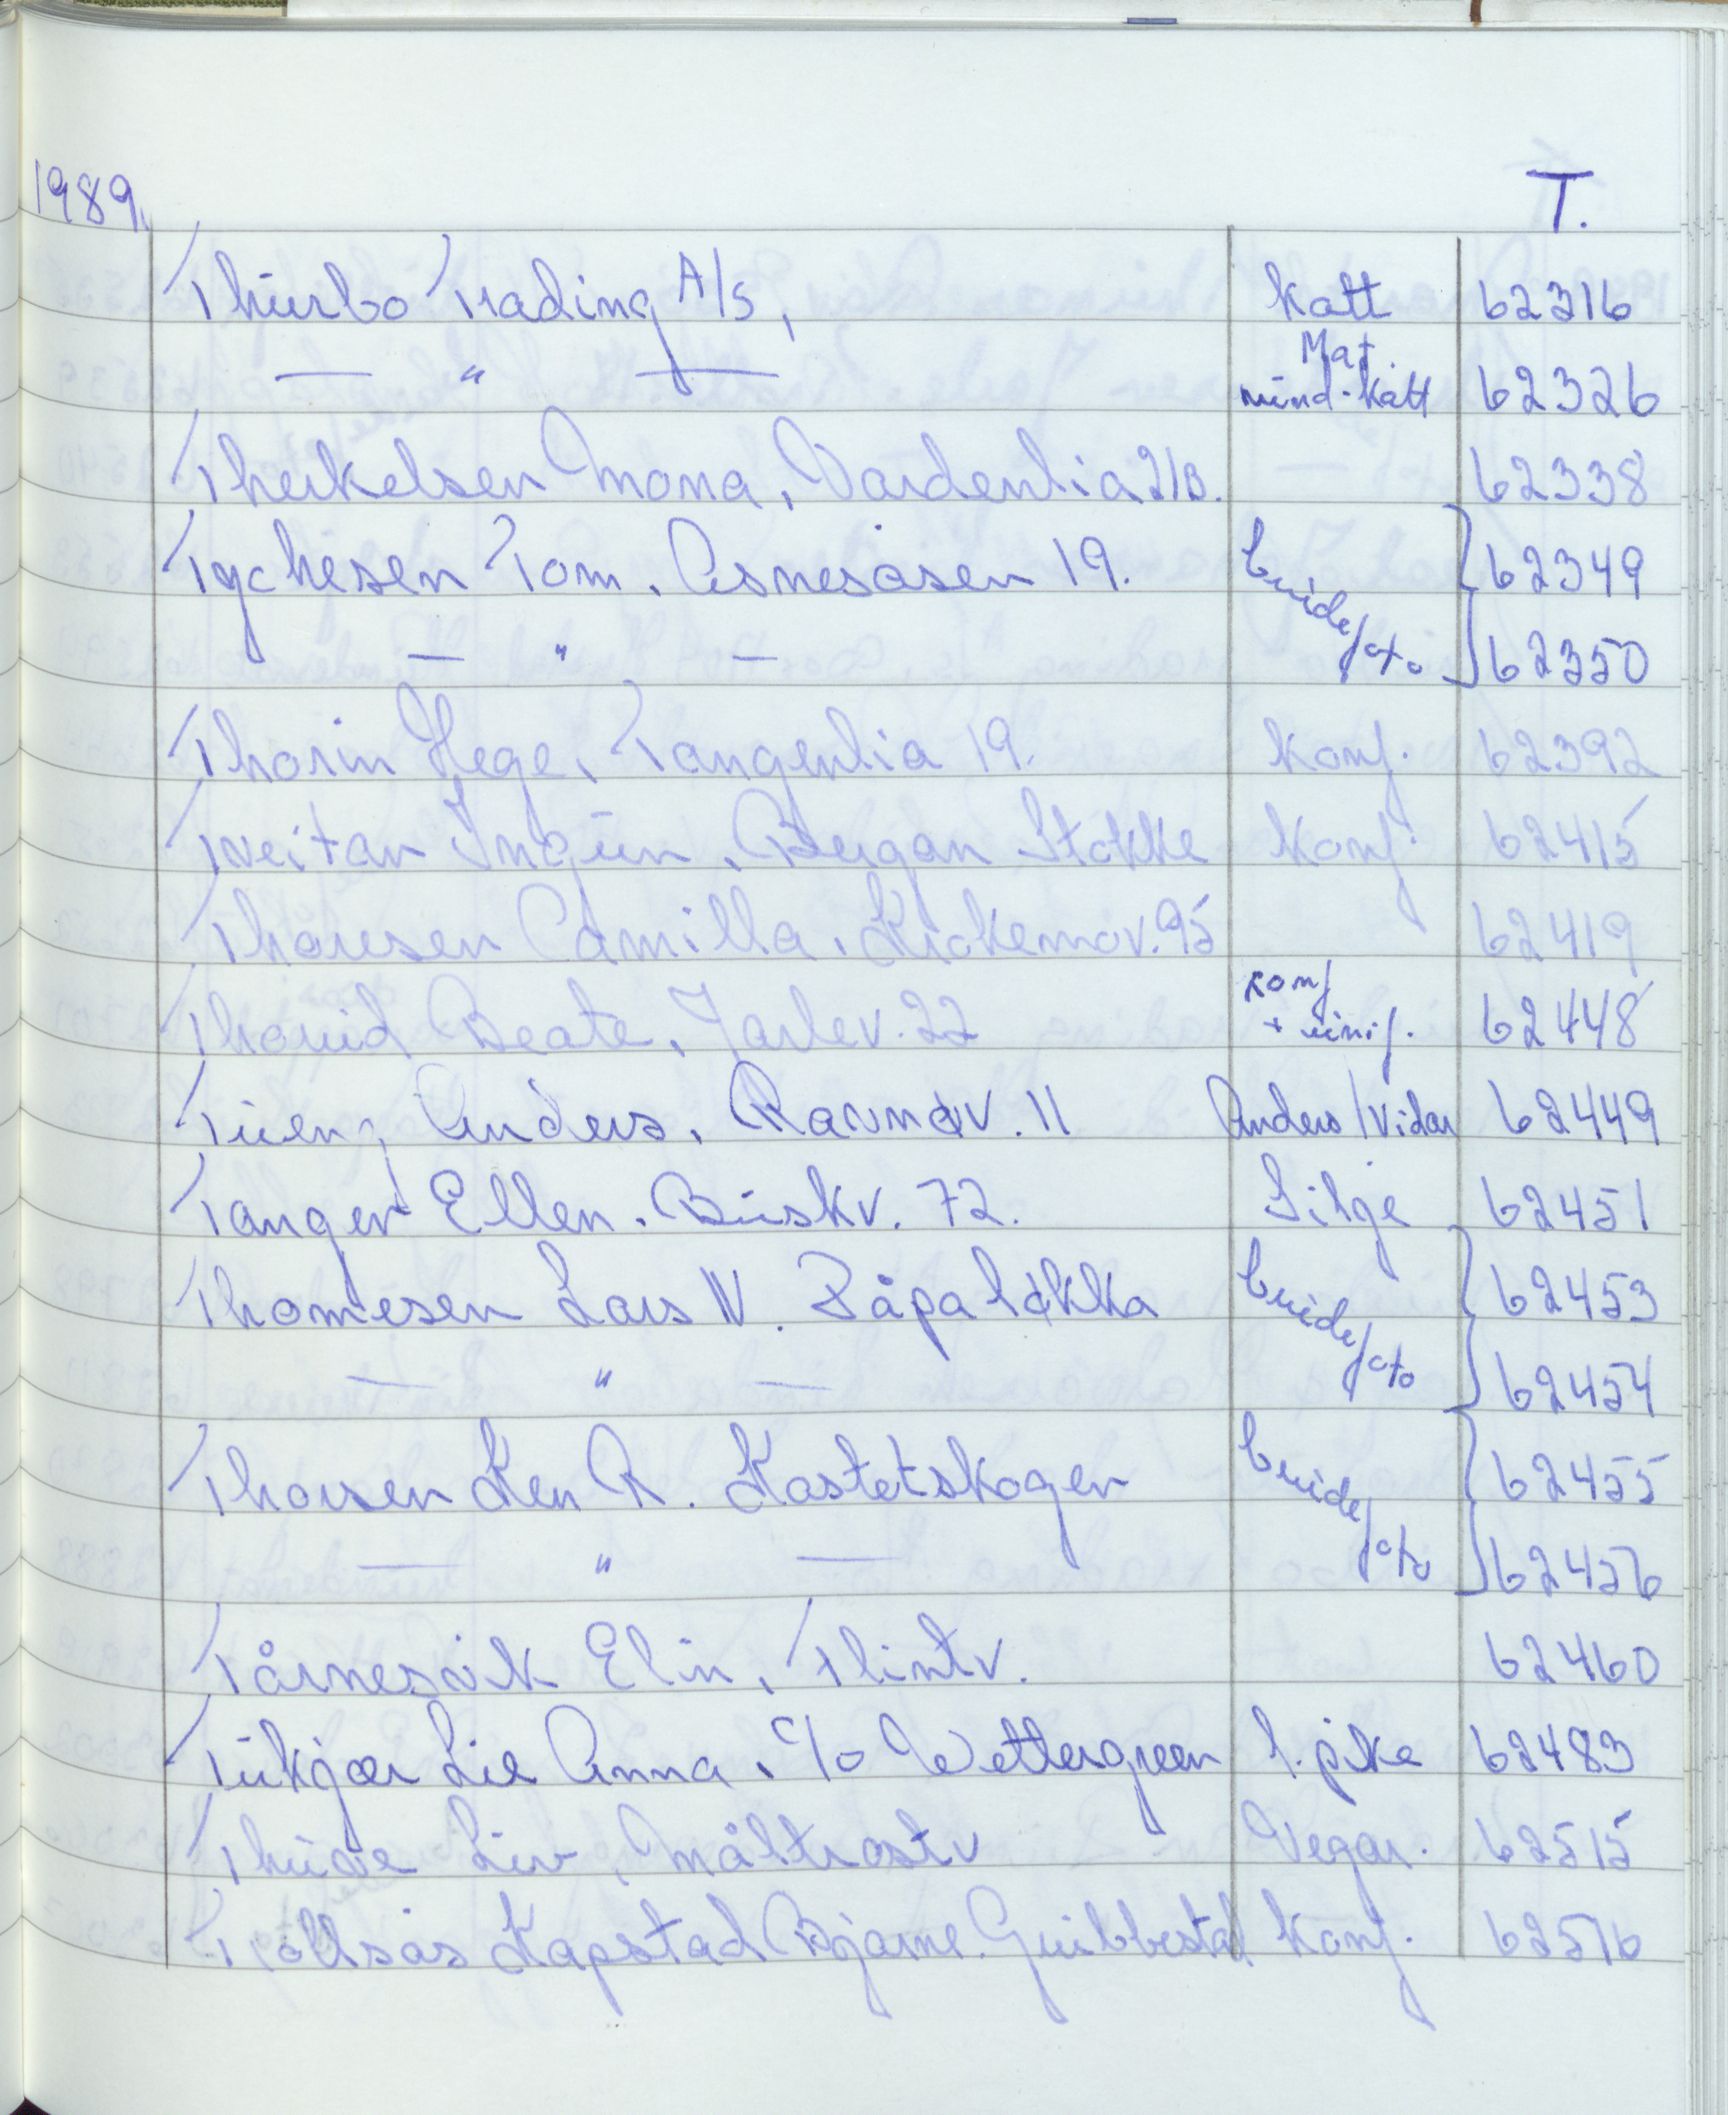 1989.
T.
Thurbo Trading A/S, Katt 62316
— " — Mat. hund-Katt 62326
Therkelsen Mona, Vardenlia 21B. 62338
Tychesen Tom. Asnesåsen 19. brude/oto 62349
— " — 62350
Thorin Hege, Tangenlia 19. Konf. 62392
Tveitan Ingunn, Bergan Stokke Konf. 62415
Thoresen Camilla, Krokemov. 95 62419
Thorud Beate, Jarlev. 22 Konf + unif. 62448
Tueng Anders, Ravnøv. 11 Anders/Vidar 62449
Tangen Ellen. Buskv. 72. Silje 62451
Thomesen Lars N. Råpaløkka brude/oto 62453
— " — 62454
Thorsen Ken R. Kastetskogen brude/oto 62455
— " — 62456
Tårnesvik Elin, Flintv. 62460
Tukjær Lie Anna, c/o Wettergreen l. pike 62483
Thuve Liv, Måltrostv Vegar. 62515
Trollsås Kapstad Bjarne. Gulibbestad Konf. 62516